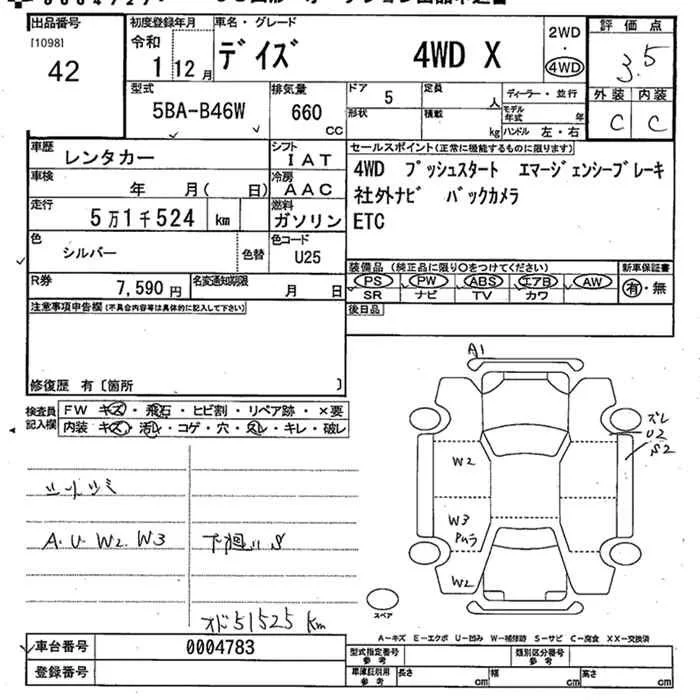 出品番号 初度登録年月 車名・グレード 2WD 評価点
[1098] 令和 デイズ 4WD X ・ 3.5
42 1 12月 4WD
型式 排気量 ドア 5 定員 人 ディーラー・並行 外装 内装
5BA-B46W 660 CC 形状 積載 kg モデル年式 年 C C
ハンドル 左・右
車歴 レンタカー シフト IAT セールスポイント(正常に機能するものに限ります)
車検 年 月( 日) 冷房 AAC 4WD プッシュスタート エマージェンシーブレーキ
走行 5万1千524 km 燃料 ガソリン 社外ナビ バックカメラ
色 シルバー 色替 色コード U25 ETC
R券 7,590円 名変通知期限 月 日 装備品 (純正品に限り○をつけてください) 新車保証書
PS PW ABS エアB AW 有・無
SR ナビ TV カワ
注意事項申告欄(不具合内容等は具体的に記入して下さい) 後日品
修復歴 有〔箇所 〕
検査員記入欄 FW キズ・飛石・ヒビ割・リペア跡・×要
内装 キズ・汚レ・コゲ・穴・スレ・キレ・破レ
A1
ズレ
U2
S2
W2
W3
W2
A.U W2. W3 下廻りS
スペア
51525 Km
A-キズ E-エクボ U-凹み W-補修跡 S-サビ C-腐食 XX-交換済
車台番号 0004783 型式指定番号 参考 類別区分番号 参考
登録番号 車庫証明用 参考 長さ cm 幅 cm 高さ cm